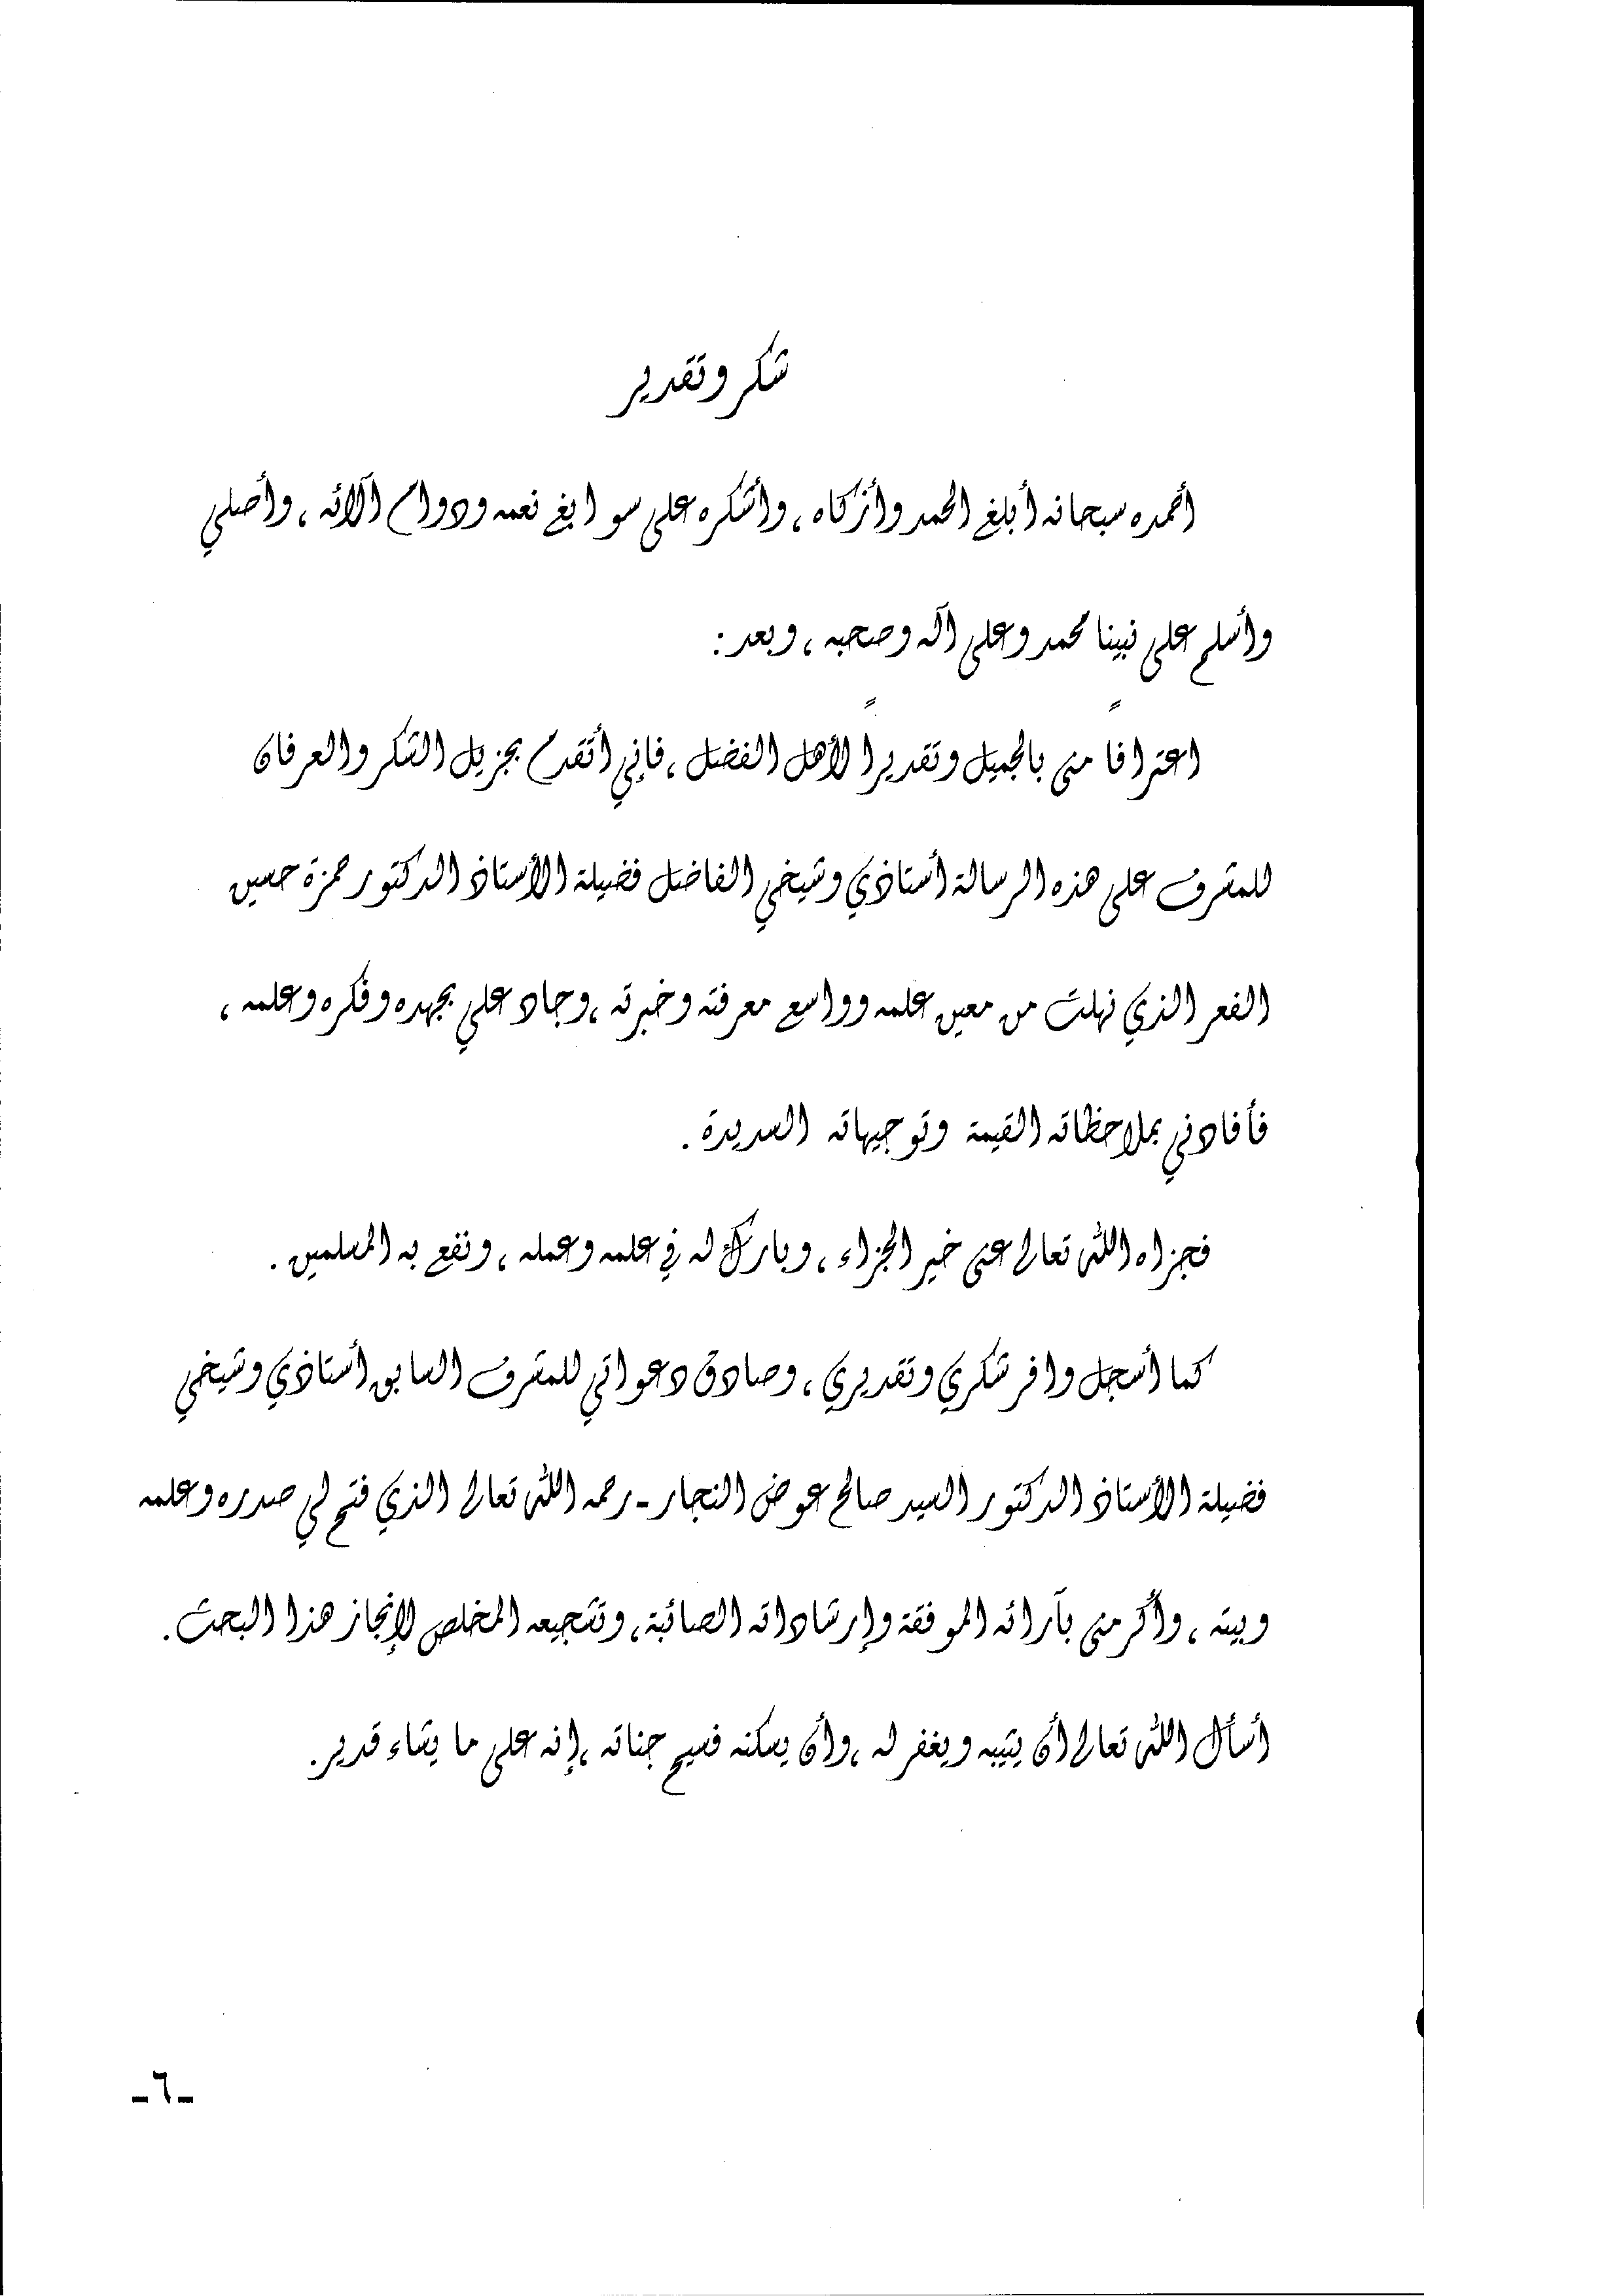 شكر وتقدير
أحمده سبحانه أبلغ الحمد وأزكاه ، وأشكره على سوابغ نعمه ودوام آلائه ، وأصلي
وأسلم على نبينا محمد وعلى آله وصحبه ، وبعد :
اعترافاً مني بالجميل وتقديراً لأهل الفضل ، فإني أتقدم بجزيل الشكر والعرفان
للمشرف على هذه الرسالة أستاذي وشيخي الفاضل فضيلة الأستاذ الدكتور حمزة حسين
الفعر الذي نهلت من معين علمه وواسع معرفته وخبرته ، وجاد علي بجهده وفكره وعلمه ،
فأفادني بملاحظاته القيمة وتوجيهاته السديدة .
فجزاه الله تعالى عني خير الجزاء ، وبارك له في علمه وعمله ، ونفع به المسلمين .
كما أسجل وافر شكري وتقديري ، وصادق دعواتي للمشرف السابق أستاذي وشيخي
فضيلة الأستاذ الدكتور السيد صالح عوض النجار - رحمه الله تعالى الذي فتح لي صدره وعلمه
وبيته ، وأكرمني بآرائه الموفقة وإرشاداته الصائبة ، وتشجيعه المخلص لإنجاز هذا البحث .
أسأل الله تعالى أن يثيبه ويغفر له ، وأن يسكنه فسيح جناته ، إنه على ما يشاء قدير .
-٦-